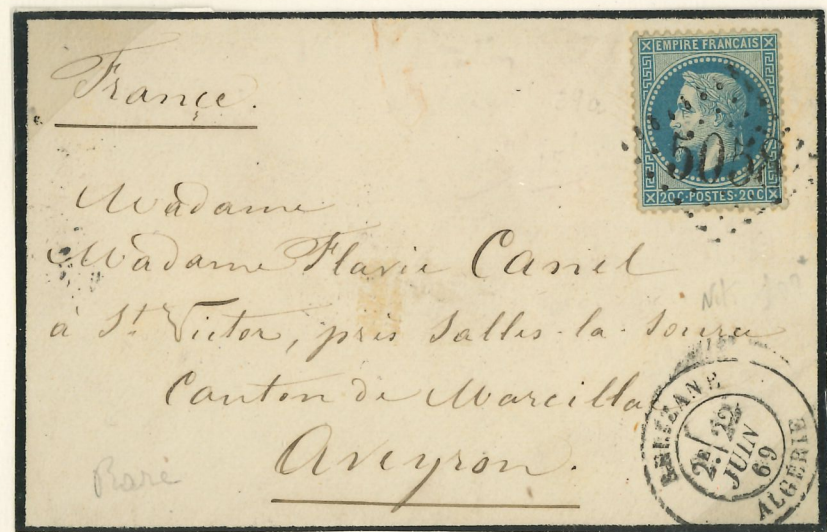 France.
EMPIRE FRANÇAIS
20C·POSTES·20C
Madame
Madame Flavie Canel
à St. Victor, près Salles-la-Source
Canton de Marcilla
Aveyron.
Rare
RELIZANE
2E / 22
JUIN
69
ALGERIE